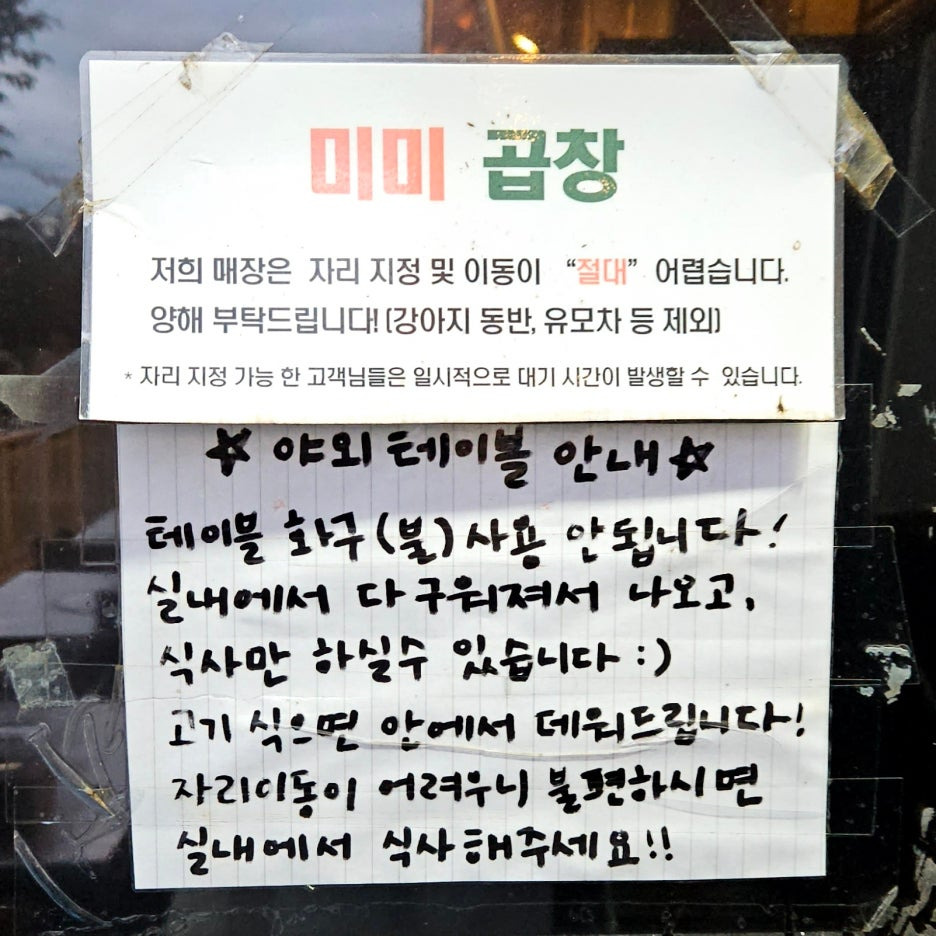 미미 곱창
저희 매장은 자리 지정 및 이동이 “절대” 어렵습니다.
양해 부탁드립니다! (강아지 동반, 유모차 등 제외)
* 자리 지정 가능 한 고객님들은 일시적으로 대기 시간이 발생할 수 있습니다.
☆ 야외 테이블 안내 ☆
테이블 화구(불) 사용 안됩니다!
실내에서 다 구워져서 나오고,
식사만 하실수 있습니다 :)
고기 식으면 안에서 데워드립니다!
자리이동이 어려우니 불편하시면
실내에서 식사해주세요!!